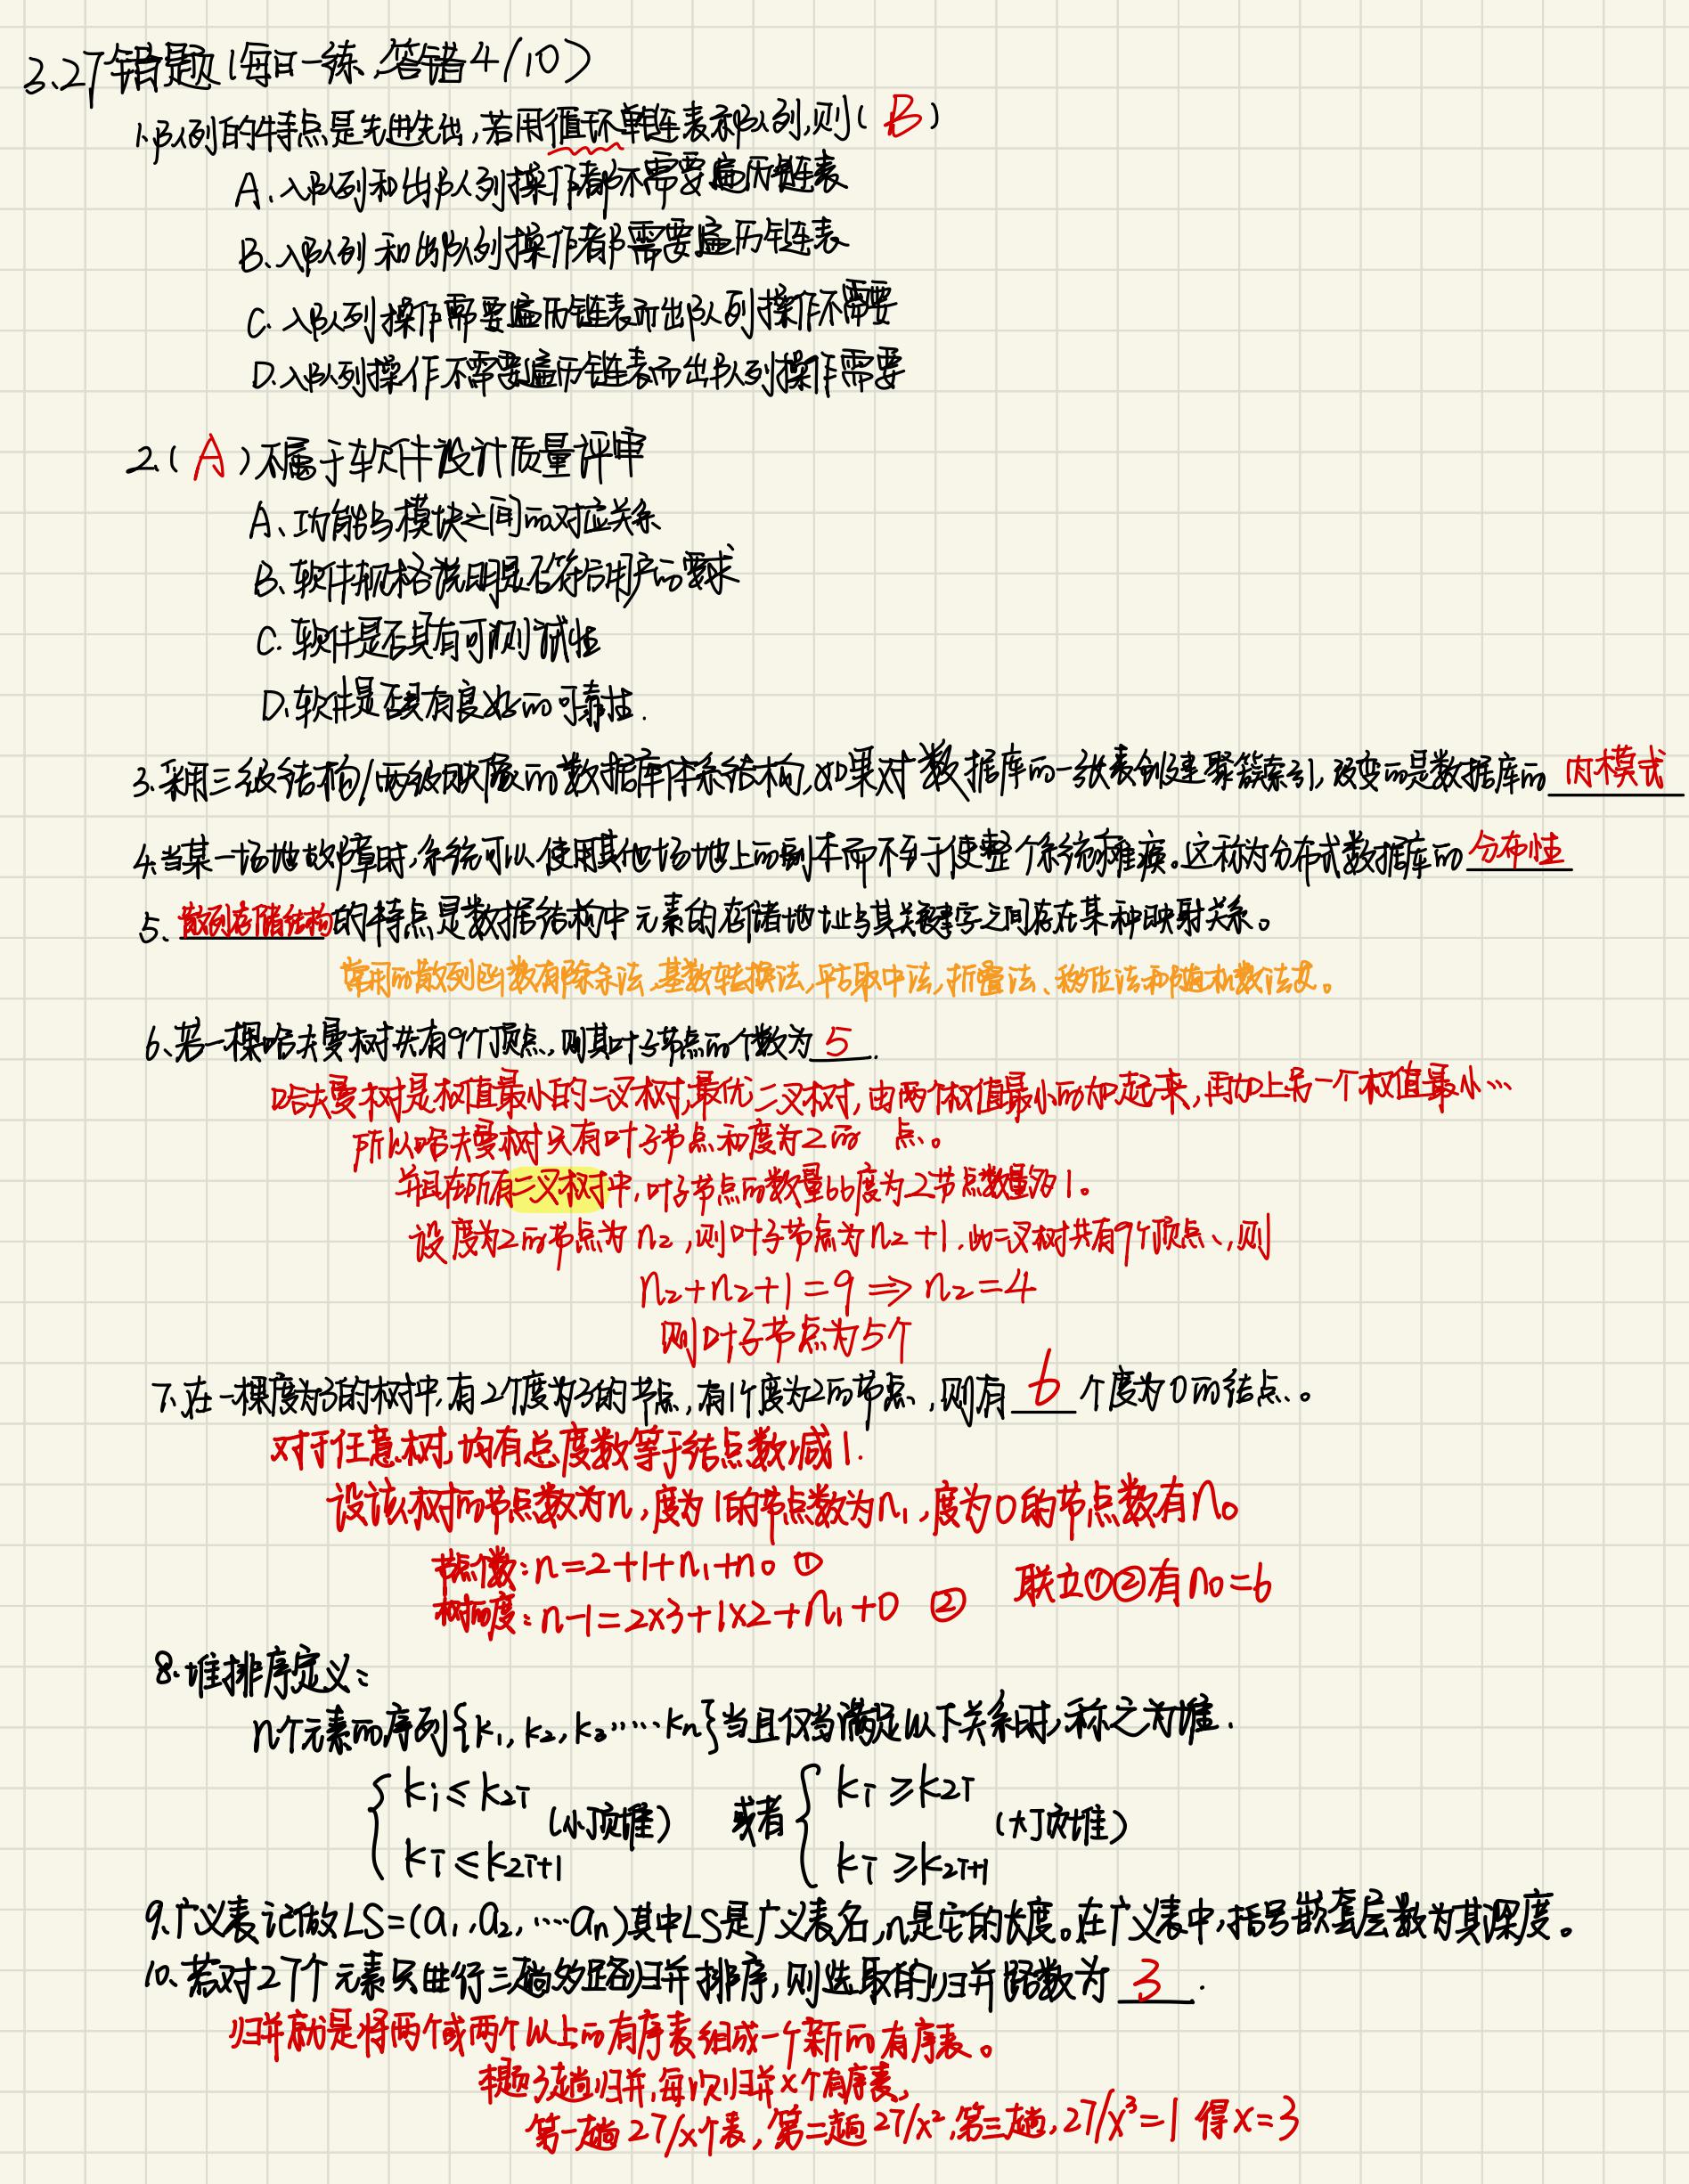 3.27错题(每日一练、答错4/10)
1.队列的特点是先进先出,若用循环单链表示队列,则(B)
A.入队列和出队列操作都不需要遍历链表
B.入队列和出队列操作都需要遍历链表
C.入队列操作需要遍历链表而出队列操作不需要
D.入队列操作不需要遍历链表而出队列操作需要
2.(A)不属于软件设计质量评审
A、功能与模块之间的对应关系
B、软件规格说明是否符合用户的要求
C.软件是否具有可测试性
D.软件是否具有良好的可靠性.
3.采用三级结构/两级映像的数据库体系结构,如果对数据库的一张表创建聚簇索引,改变的是数据库的内模式
4.当某一场地故障时,系统可以使用其他场地上的副本而不至于使整个系统瘫痪。这称为分布式数据库的分布性
5、散列存储结构的特点是数据结构中元素的存储地址与其关键字之间存在某种映射关系。
常用的散列函数有除余法、基数转换法,平方取中法,折叠法、移位法和随机数法
6、若一棵哈夫曼树共有9个顶点,则其叶子节点的个数为5.
哈夫曼树是权值最小的二叉树,最优二叉树,由两个权值最小的加起来,再加上另一个权值最小…
所以哈夫曼树只有叶子节点和度为2的 点。
并且在所有二叉树中,叶子节点的数量比度为2节点数量多1。
设度为2的节点为n2,则叶子节点为n2+1.此二叉树共有9个顶点、,则
n2+n2+1=9⇒n2=4
则叶子节点为5个
7.在一棵度为3的树中,有2个度为3的节点,有1个度为2的节点、,则有6个度为0的结点、。
对于任意树,均有总度数等于结点数减1.
设该树的节点数为n,度为1的节点数为n1,度为0的节点数有n0
节点个数:n=2+1+n1+n0 ①
联立①②有n0=6
树的度:n-1=2×3+1×2+n1+0 ②
8.堆排序定义:
n个元素的序列{k1,k2,k3……kn}当且仅当满足以下关系时,称之为堆.
{ ki≤k2i (小顶堆) 或者 { ki≥k2i (大顶堆)
ki≤k2i+1 ki≥k2i+1
9.广义表记做LS=(a1,a2,…an)其中LS是广义表名,n是它的长度。在广义表中,括号嵌套层数为其深度。
10、若对27个元素只进行三趟多路归并排序,则选取的归并路数为3.
归并就是将两个或两个以上的有序表组成一个新的有序表。
本题3趟归并,每次归并x个有序表,
第一趟27/x个表,第二趟27/x²,第三趟,27/x³=1 得x=3